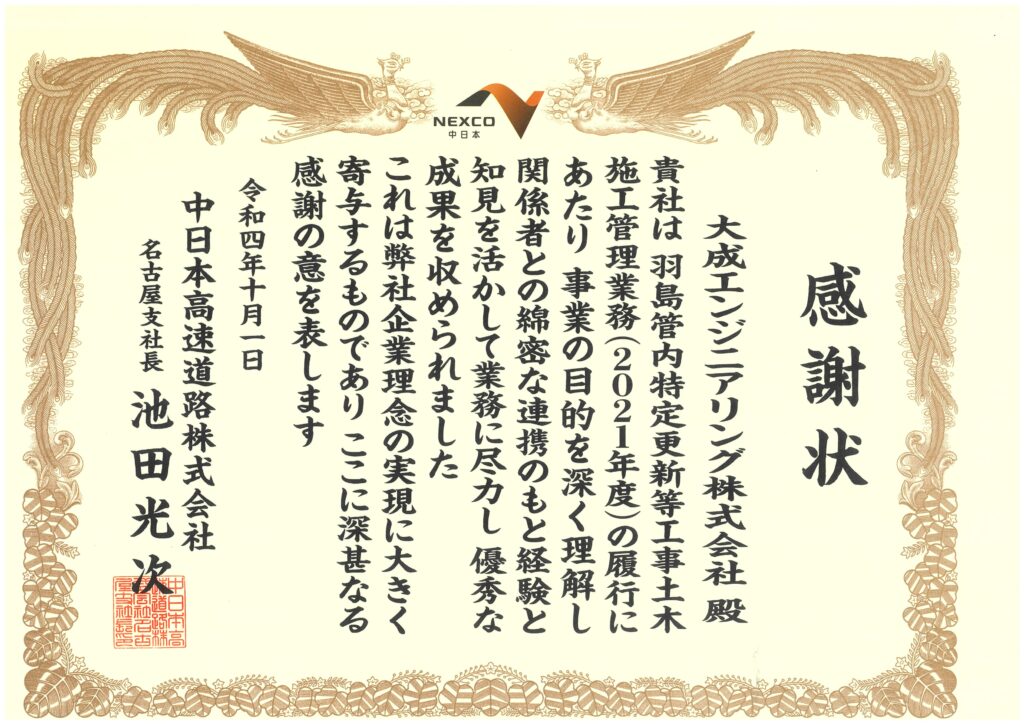 NEXCO
中日本
感謝状
大成エンジニアリング株式会社 殿
貴社は 羽島管内特定更新等工事土木
施工管理業務(2021年度)の履行に
あたり 事業の目的を深く理解し
関係者との綿密な連携のもと経験と
知見を活かして業務に尽力し 優秀な
成果を収められました
これは弊社企業理念の実現に大きく
寄与するものであり ここに深甚なる
感謝の意を表します
令和四年十月一日
中日本高速道路株式会社
名古屋支社長 池田光次
中日本高
速道路株
式会社名古
屋支社長印